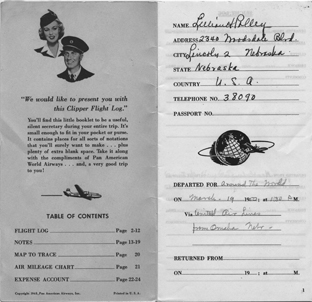 "We would like to present you with
this Clipper Flight Log."
You'll find this little booklet to be a useful,
silent secretary during your entire trip. It's
small enough to fit in your pocket or purse.
It contains places for all sorts of notations
that you'll surely want to make . . . plus
plenty of extra blank space. Take it along
with the compliments of Pan American
World Airways . . . and, a very good trip
to you!
TABLE OF CONTENTS
FLIGHT LOG Page 2-12
NOTES Page 13-19
MAP TO TRACE Page 20
AIR MILEAGE CHART Page 21
EXPENSE ACCOUNT Page 22-24
Copyright 1949, Pan American Airways, Inc. Printed in U.S.A.
NAME Lillian H. Polley
ADDRESS 2340 Woodsdale Blvd.
CITY Lincoln 2 Nebraska
STATE Nebraska
COUNTRY U.S.A.
TELEPHONE NO. 38090
PASSPORT NO.
DEPARTED FOR around the World
ON March 19 19 at M.
Via United Air Lines
from Omaha Nebr.
RETURNED FROM
ON 19 : at M.
1